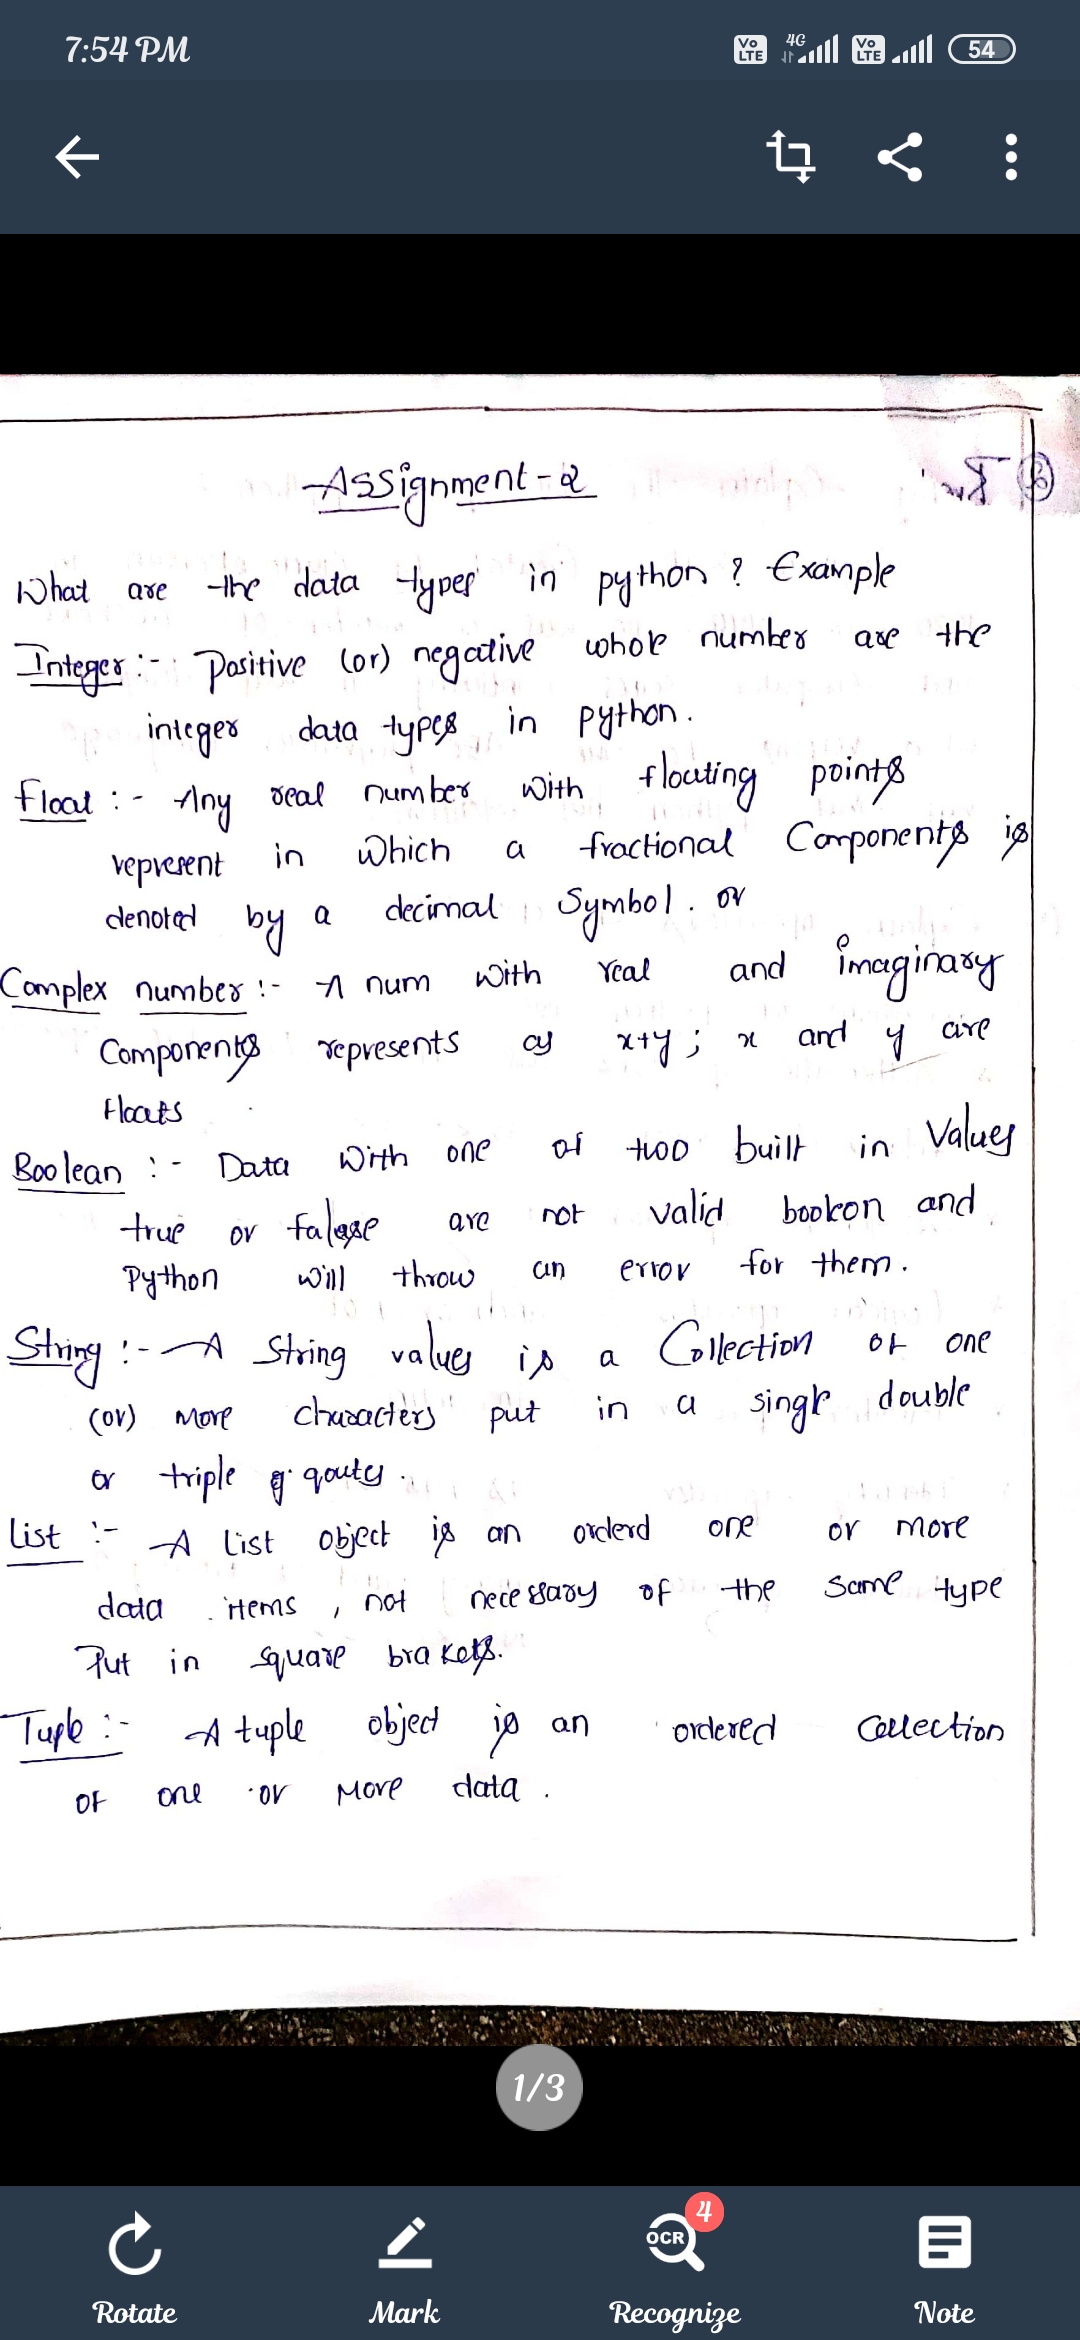 7:54 PM
Vo LTE 4G Vo LTE 54
Assignment-2
What are the data types in python ? Example
Integer :- Positive (or) negative whole number are the
integer data types in python.
Float :- Any real number with floating points
represent in which a fractional Components is
denoted by a decimal Symbol. or
Complex number :- A num with real and imaginary
Components represents as x+y ; x and y are
floats
Boolean :- Data With one of two built in Values
true or are not valid and
Python will throw an error for them.
String :- A String values is a Collection of one
(or) more characters put in a single double
or triple qouts.
List :- A list object is an orderd one or more
data items, not necessary of the same type
Put in square brakets.
Tuple :- A tuple object is an ordered Collection
OF one or More data.
1/3
OCR 4
Rotate Mark Recognize Note